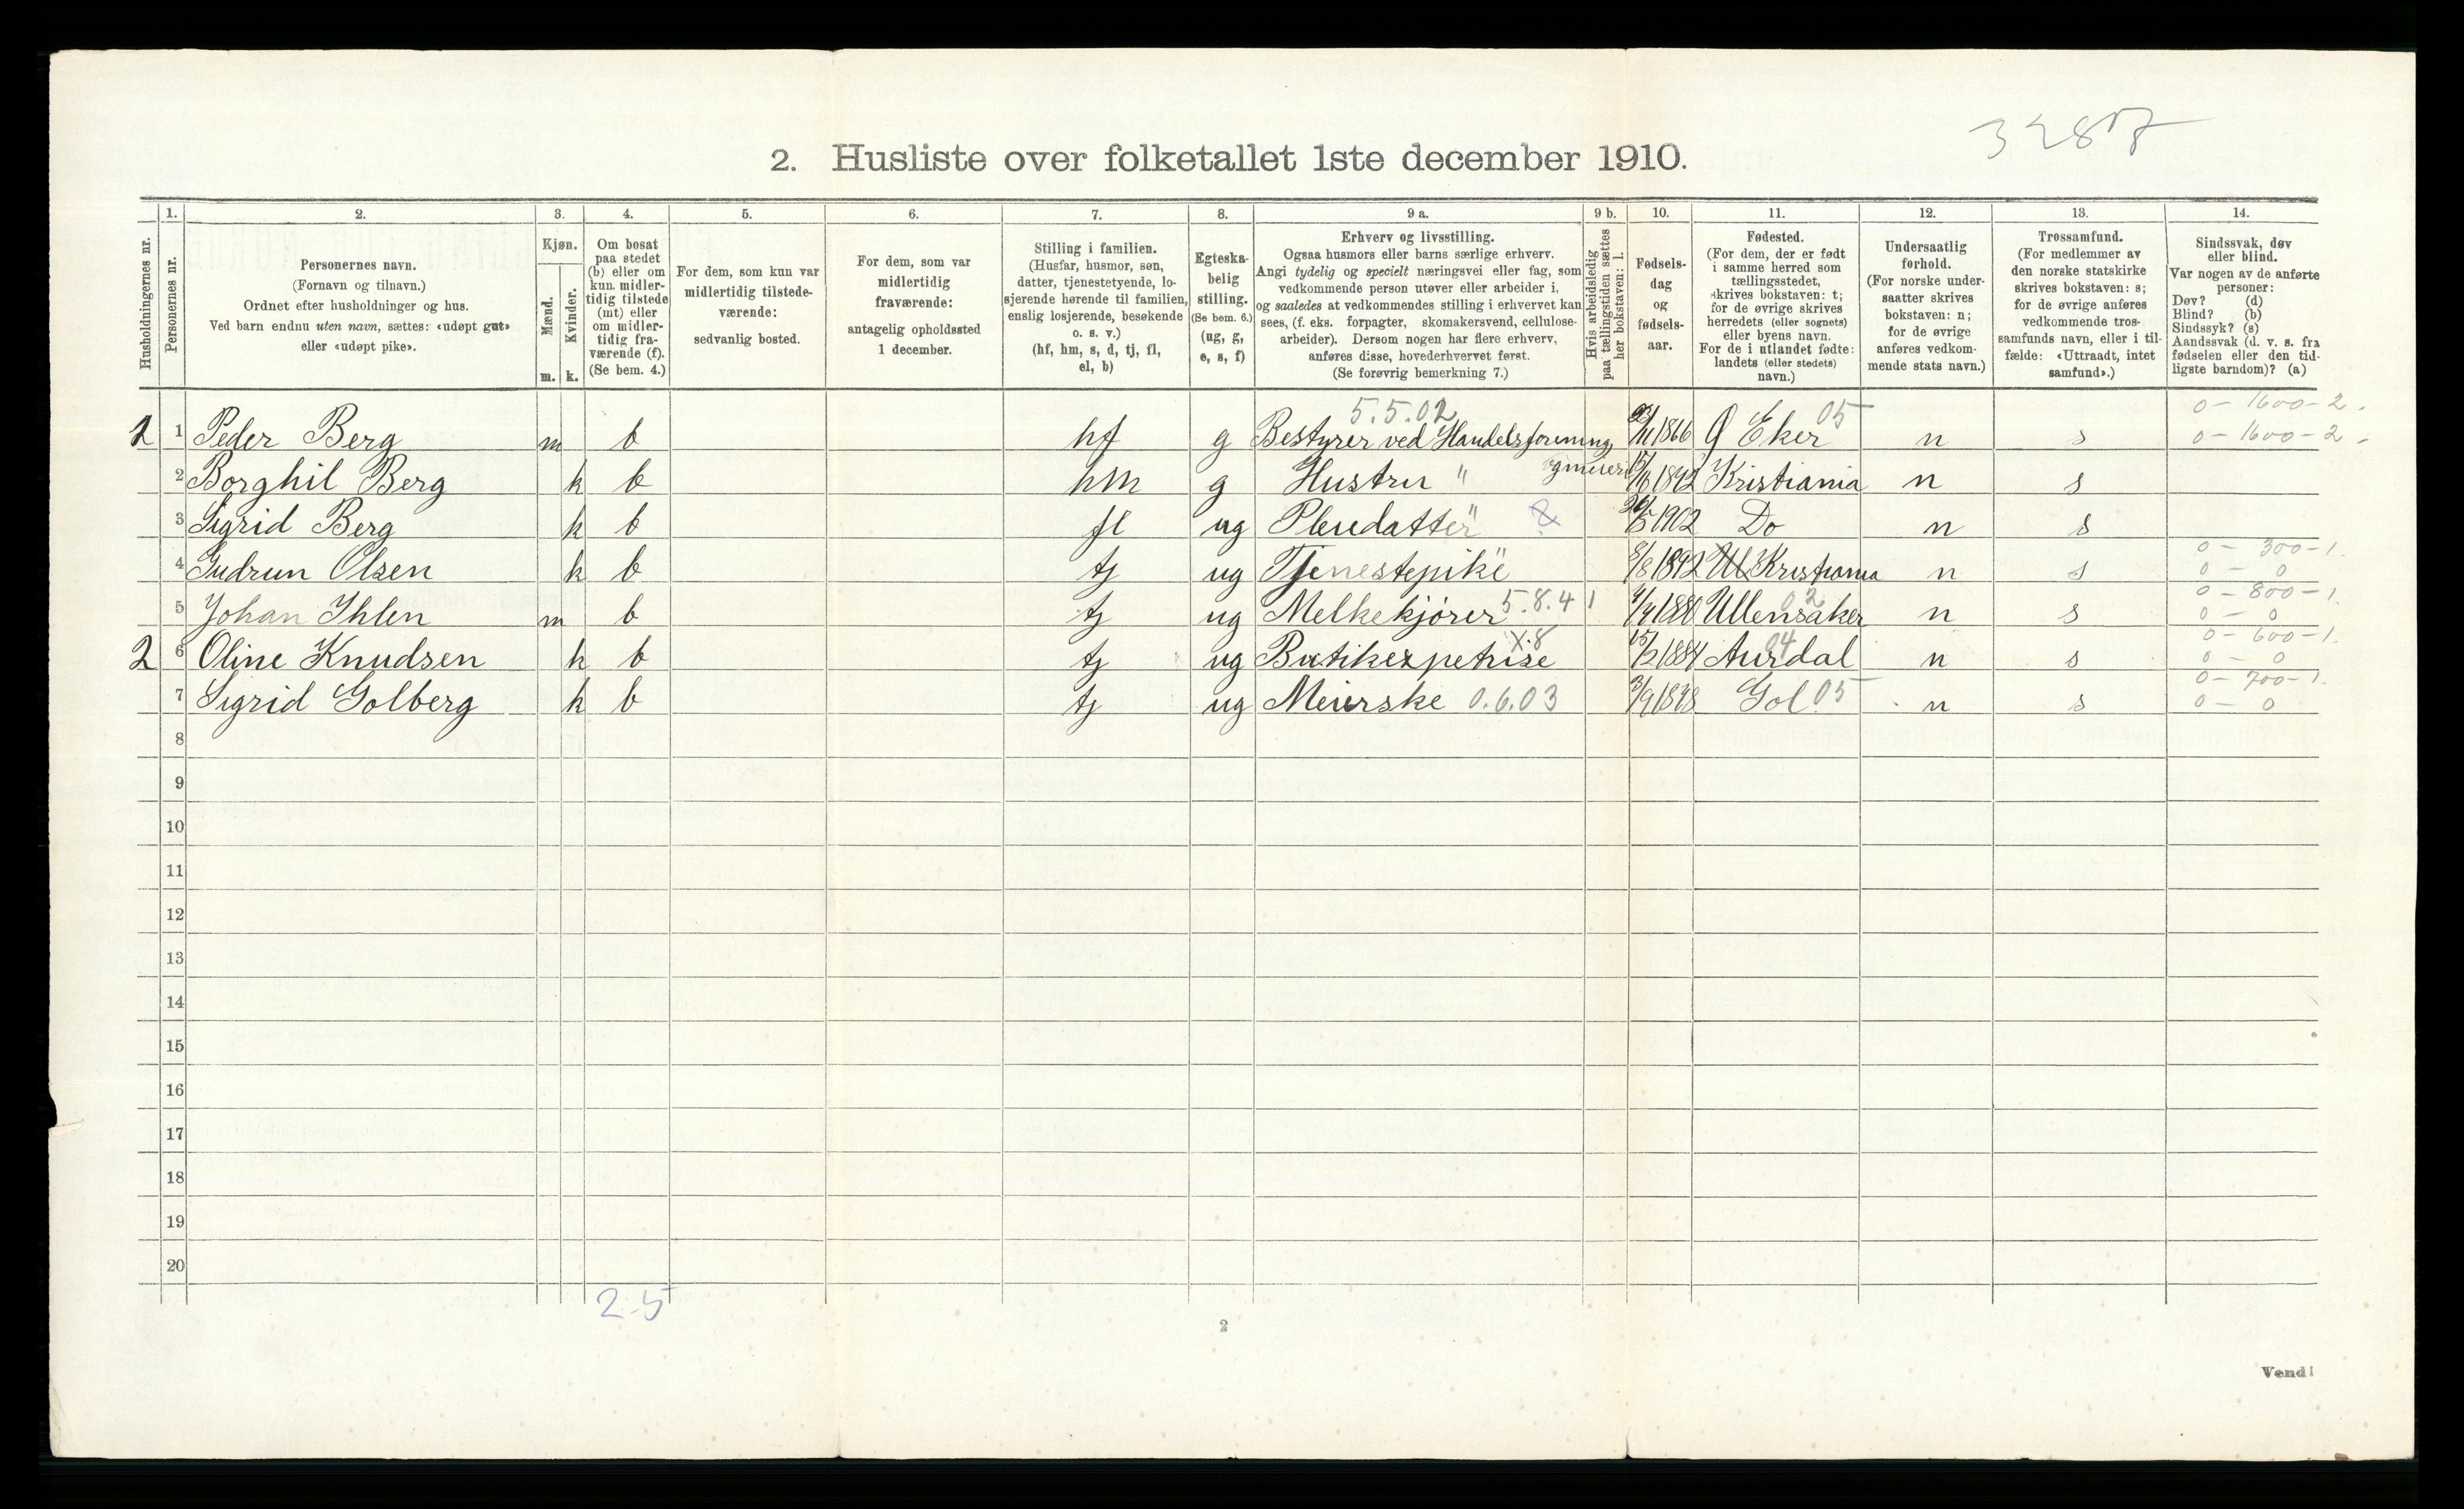 3287
2. Husliste over folketallet 1ste december 1910.
Husholdningernes nr.
1. Personernes nr.
2. Personernes navn.
(Fornavn og tilnavn.)
Ordnet efter husholdninger og hus.
Ved barn endnu uten navn, sættes: «udøpt gut»
eller «udøpt pike».
3. Kjøn.
Mænd. m.
Kvinder. k.
4. Om bosat
paa stedet
(b) eller om
kun midler-
tidig tilstede
(mt) eller
om midler-
tidig fra-
værende (f).
(Se bem. 4.)
5. For dem, som kun var
midlertidig tilstede-
værende:
sedvanlig bosted.
6. For dem, som var
midlertidig
fraværende:
antagelig opholdssted
1 december.
7. Stilling i familien.
(Husfar, husmor, søn,
datter, tjenestetyende, lo-
sjerende hørende til familien,
enslig losjerende, besøkende
o. s. v.)
(hf, hm, s, d, tj, fl,
el, b)
8. Egteska-
belig
stilling.
(Se bem. 6.)
(ug, g,
e, s, f)
9 a. Erhverv og livsstilling.
Ogsaa husmors eller barns særlige erhverv.
Angi tydelig og specielt næringsvei eller fag, som
vedkommende person utøver eller arbeider i,
og saaledes at vedkommendes stilling i erhvervet kan
sees, (f. eks. forpagter, skomakersvend, cellulose-
arbeider). Dersom nogen har flere erhverv,
anføres disse, hovederhvervet først.
(Se forøvrig bemerkning 7.)
9 b. Hvis arbeidsledig
paa tællingstiden sættes
her bokstaven: l.
10. Fødsels-
dag
og
fødsels-
aar.
11. Fødested.
(For dem, der er født
i samme herred som
tællingsstedet,
skrives bokstaven: t;
for de øvrige skrives
herredets (eller sognets)
eller byens navn.
For de i utlandet fødte:
landets (eller stedets)
navn.)
12. Undersaatlig
forhold.
(For norske under-
saatter skrives
bokstaven: n;
for de øvrige
anføres vedkom-
mende stats navn.)
13. Trossamfund.
(For medlemmer av
den norske statskirke
skrives bokstaven: s;
for de øvrige anføres
vedkommende tros-
samfunds navn, eller i til-
fælde: «Uttraadt, intet
samfund».)
14. Sindssvak, døv
eller blind.
Var nogen av de anførte
personer:
Døv? (d)
Blind? (b)
Sindssyk? (s)
Aandssvak (d. v. s. fra
fødselen eller den tid-
ligste barndom)? (a)
5.5.02 05 0 - 1600 - 2.
1 1 Peder Berg m b hf g Bestyrer ved Handelsforening, 1866 Ø Eker n s 0 - 1600 - 2 -
og meieri
2 Borghil Berg k b hm g Hustru " Kristiania n s
3 Sigrid Berg k b fl ug Pleiedatter " 1902 Do n s
0 - 300 - 1.
4 Gudrun Olsen k b tj ug Tjenestepike " 8/8 1892 Kristiania n s 0 - 0
5.8.41 02 0 - 800 - 1.
5 Johan Ihlen m b tj ug Melkekjører Ullensaker n s 0 - 0
X.8 04 0 - 600 - 1.
2 6 Oline Knudsen k b tj ug Butikexpetrise 15/2 1884 Aurdal n s 0 - 0
0 - 700 - 1.
7 Sigrid Golberg k b tj ug Meierske 0.6.03 Gol 05 n s 0 - 0
8
9
10
11
12
13
14
15
16
17
18
19
20
2-5
2
Vend!